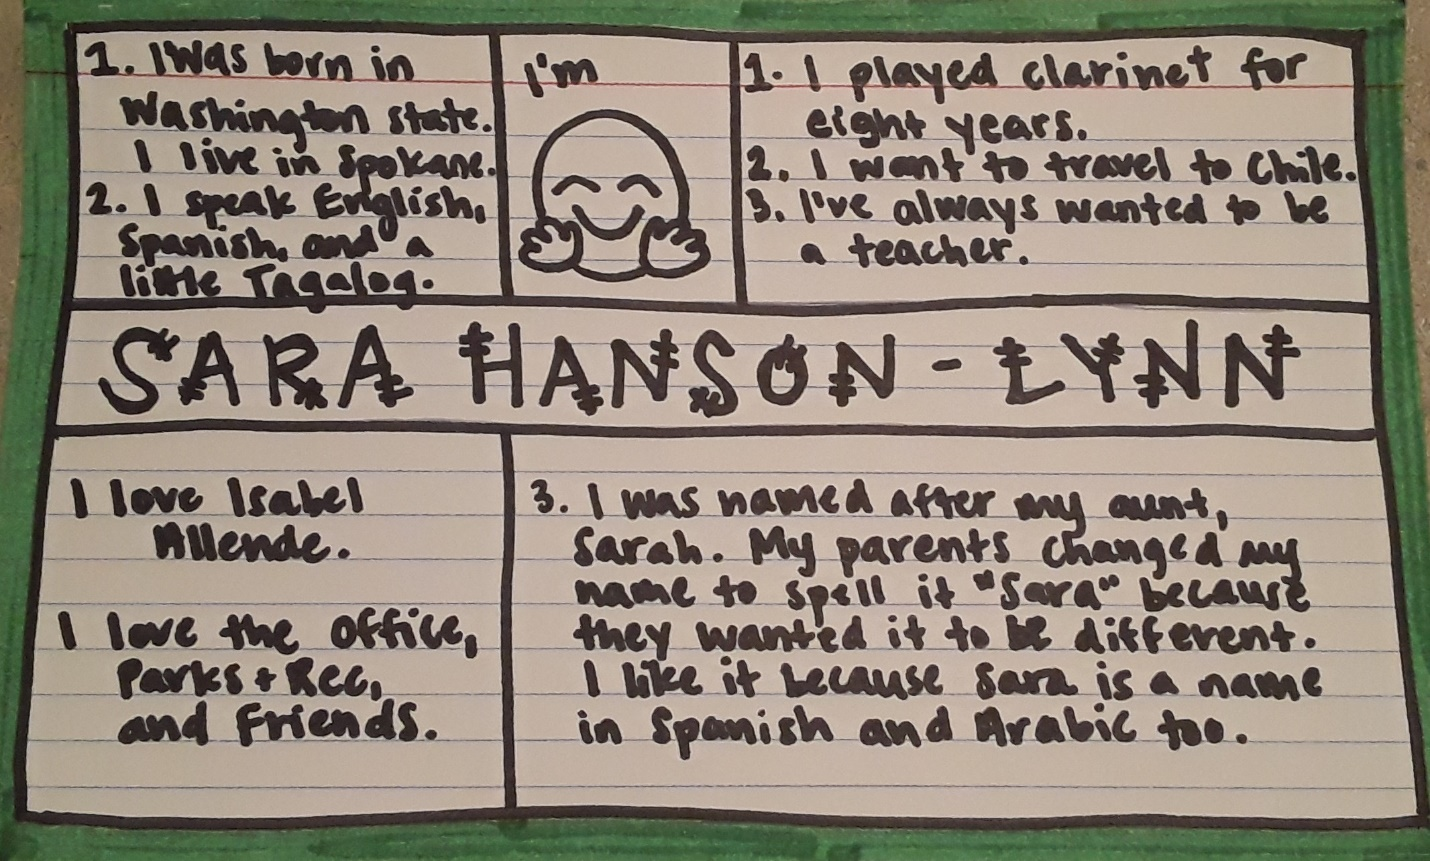 1. I was born in
Washington state.
I live in Spokane.
2. I speak English,
Spanish, and a
little Tagalog.
I'm
1. I played clarinet for
eight years.
2. I want to travel to Chile.
3. I've always wanted to be
a teacher.
SARA HANSON-LYNN
I love Isabel
Allende.
I love the Office,
Parks + Rec,
and Friends.
3. I was named after my aunt,
Sarah. My parents changed my
name to spell it "Sara" because
they wanted it to be different.
I like it because Sara is a name
in Spanish and Arabic too.